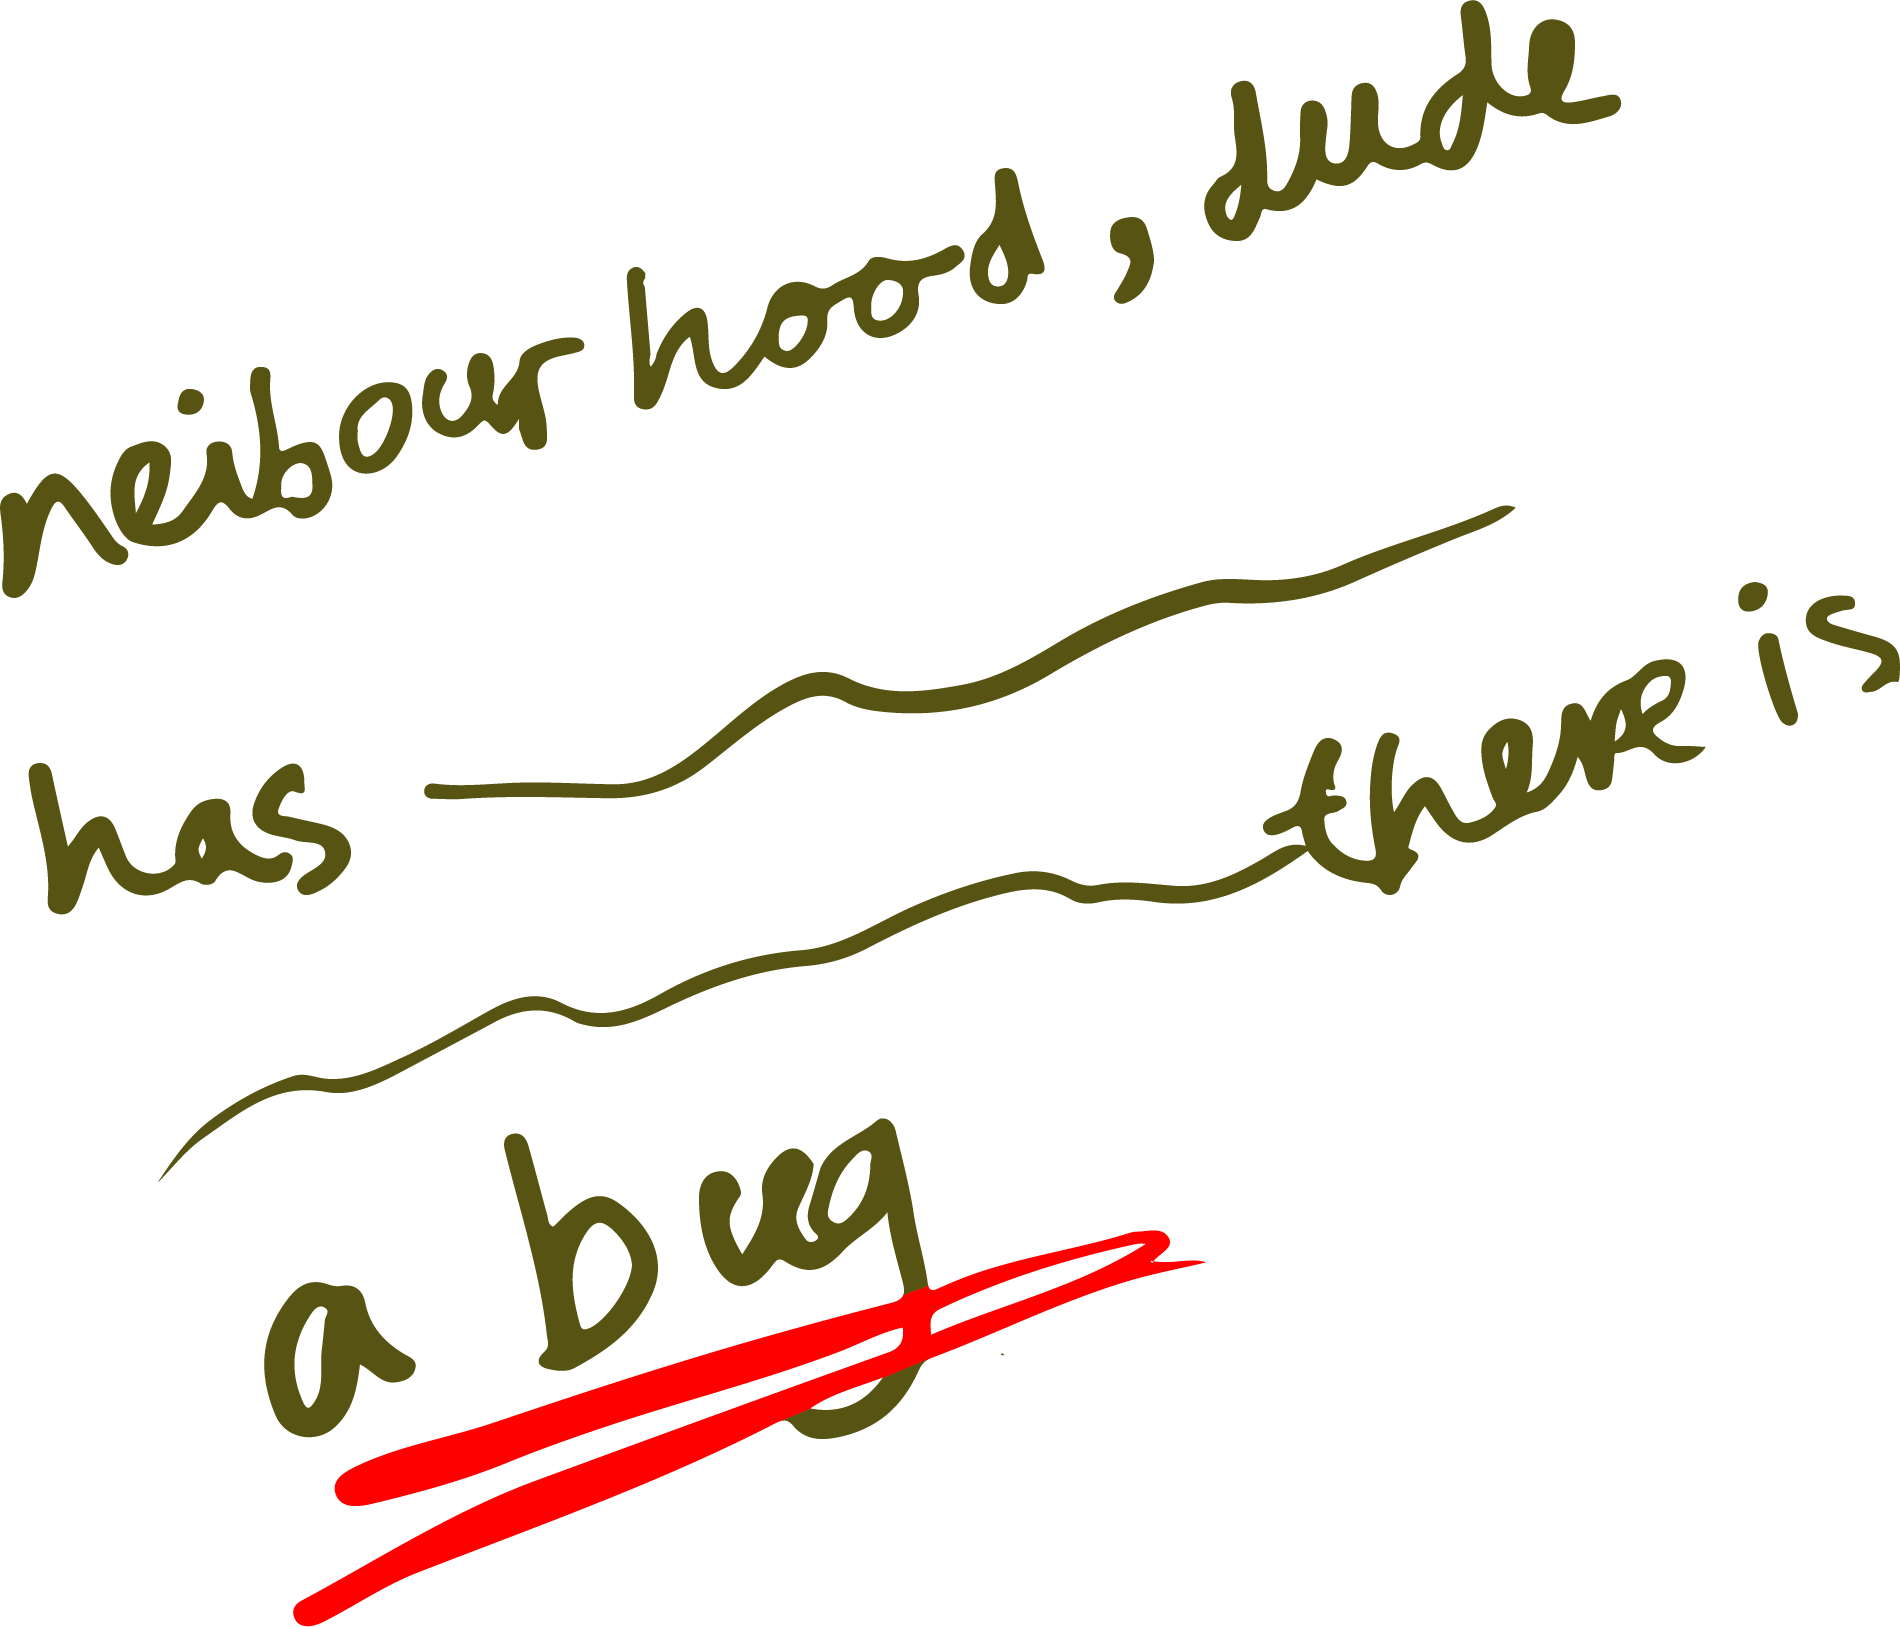 neibourhood, dude
has
there is
a bug